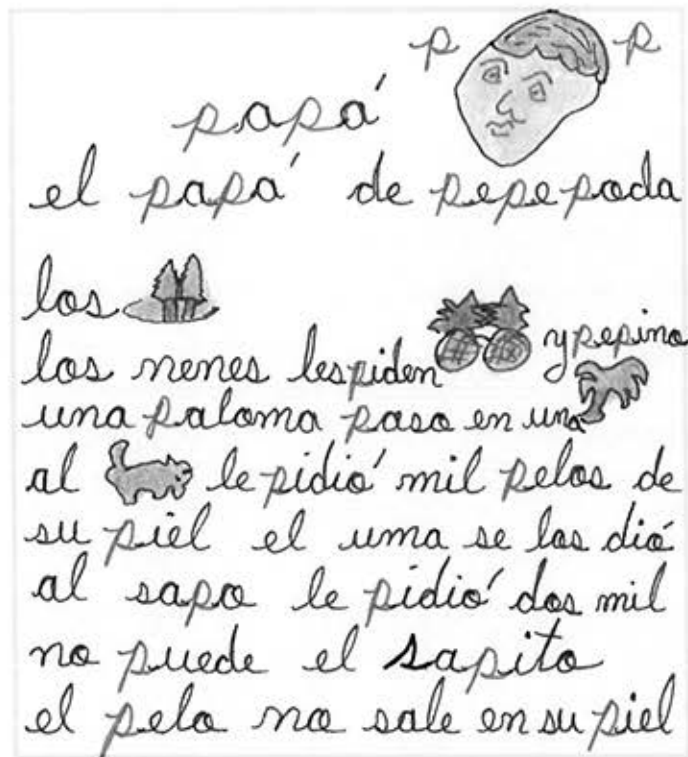 p p
papá
el papá de pepe poda
los
los nenes les piden y pepino
una paloma paso en una
al le pidió mil pelos de
su piel el uma se los dió
al sapo le pidió dos mil
no puede el sapito
el pelo no sale en su piel